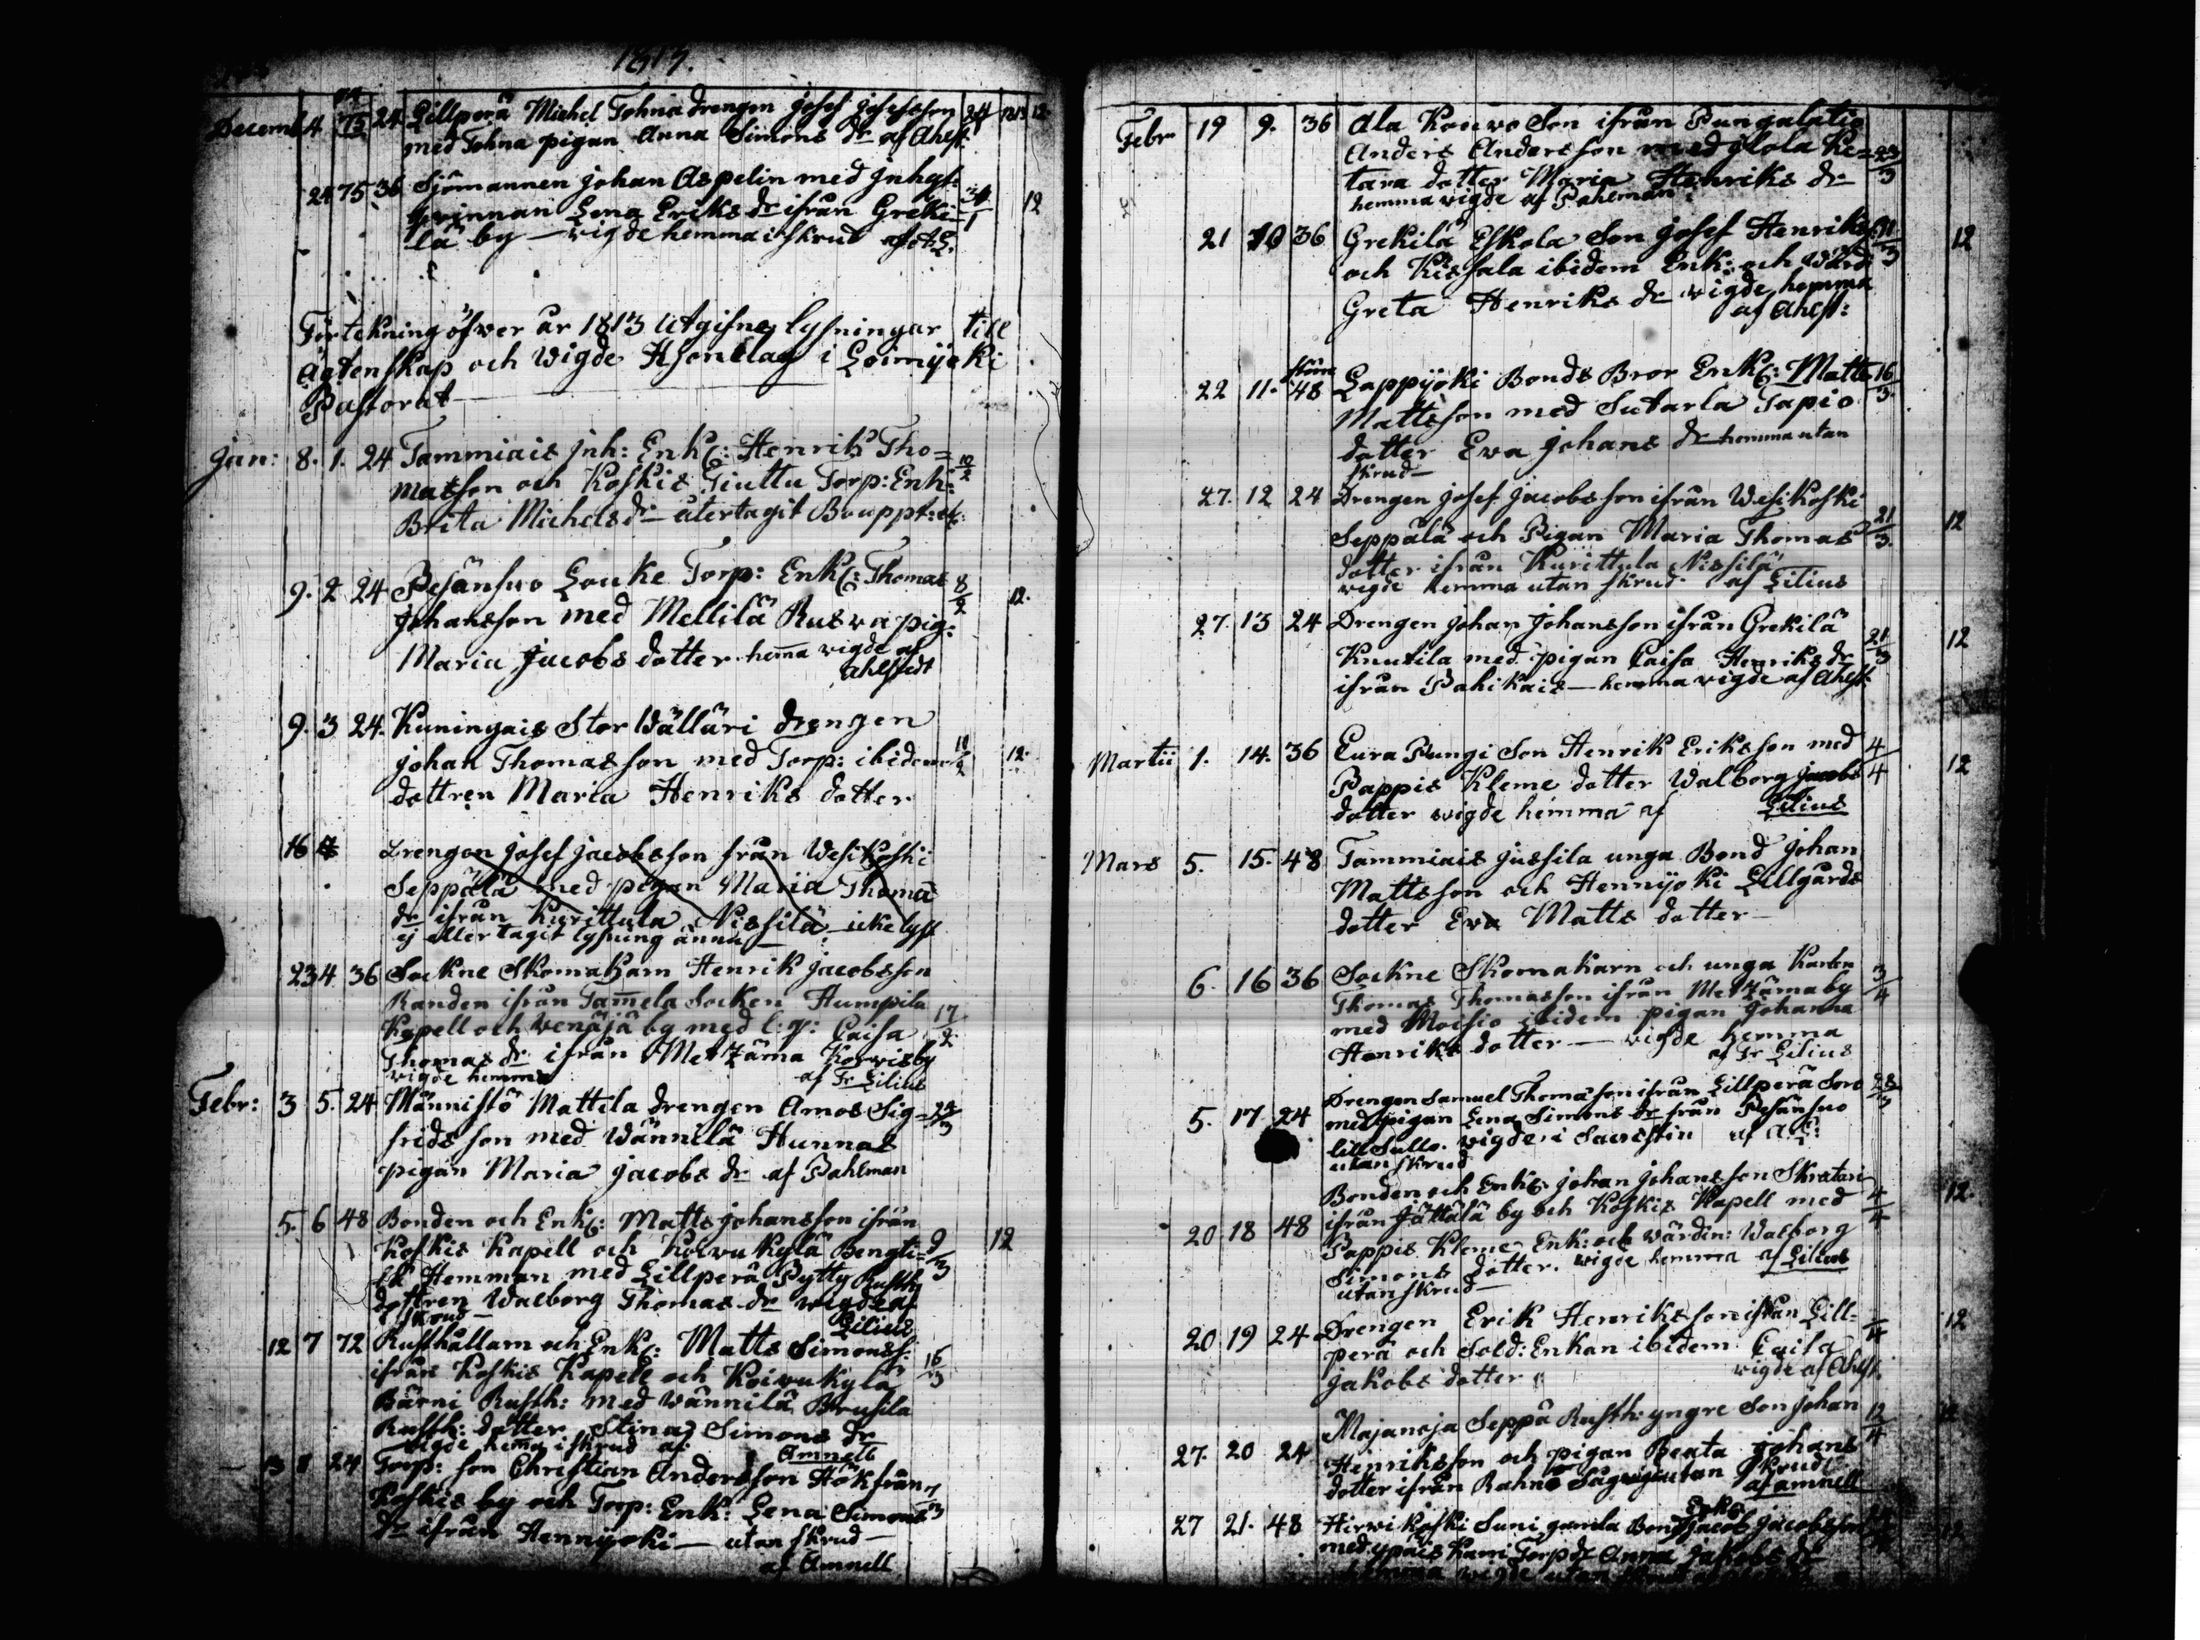 1813.
Decemb 4 75 24 Lillperä Michel Tohnia drengen Josef Josefsson 24 1813 12
med Tohna pigan Anna Simons dr af Ahlst:
24 75 36 Sjömannen Johan Aspelin med Inhys:
qvinnan Lena Eriks dr ifrån Greki= 24/1 12
lä by — vigde hemma i skrud
Förtekning öfwer år 1813 utgifne lysningar till
Ägtenskap och wigde Hjonelag i Loimijoki
Pastorat
Jan: 8. 1. 24 Tammiais Inh: Enk: Henrik Tho=
masson och Koskis Tiuttu Torp: Enk:
Brita Michels dr återtagit
9. 2 24 Pesänsuo Louke Torp: Enk: Thomas 8/2
Johansson med Mellilä Rusva pig: 12.
Maria Jacobs dotter hema vigde af
Ahlstedt
9. 3 24. Kuningais Stor Wälläri drengen
Johan Thomasson med Torp: ibidem 12.
dottren Maria Henriks dotter
16 Drengen Josef Jacobsson från Wesikoski
Seppälä med pigan Maria Thoma
dr ifrån Kurittula Nissilä icke lyst
ej eller tagit lysning ännu
23 4 36 Sockne Skomakarn Henrik Jacobsson
Randen ifrån Tamela Socken Humpila
Kapell och Venäjä by med l: q: Caisa 17/2
Thomas dr ifrån Metzäma Korvis by
vigde hemma af Fr Lilius
Febr: 3 5. 24 Männistö Mattila drengen Amos Sig=
frids son med Wännilä Hunnas
pigan Maria Jacobs dr af Pahlman
5. 6 48 Bonden och Enk: Matts Johansson ifrån
Koskis Kapell och Koivukylä Bengti= 9/3 12
lä Hemman med Lillperä Pytty Rusth
dottren Walborg Thomas dr vigde af
i skrud — Lilius
12 7 72 Rusthållarn och Enk: Matts Simonss:
ifrån Koskis Kapell och Koivukylä
Bärni Rusth: med Wännilä Brusila
Rusth: dotter Stina Simons dr
vigde hema i skrud af Amnell
13 8 24 Torp: son Christian Andersson Hök från
Koskis by och Torp: Enk: Lena Simons
dr ifrån Hennijoki — utan skrud —
af Amnell
Febr 19 9. 36 Ala Kouvo Son ifrån Pungalatio
Anders Andersson med Ilola Ke= 23/3
tara dotter Maria Henriks dr
hemma vigde af Pahlman
21 10 36 Grekilä Eskola Son Josef Henriks
och Kissala ibidem Enk: och Värd 12
Greta Henriks dr vigde hemma
af Ahlst:
22 11. 48 Lappijoki Bonds Bror Enk: Matts 16/3
Mattsson med Sutarla Tapio
dotter Eva Johans dr hemma utan
skrud —
27. 12 24 Drengen Josef Jacobsson ifrån Wesikoski
Seppälä och Pigan Maria Thomas 21/3. 12
dotter ifrån Kurittula Nissilä
vigde hemma utan skrud af Lilius
27. 13 24 Drengen Johan Johansson ifrån Grekilä
Knutila med pigan Caisa Henriks dr 21/3 12
ifrån Pahikais — hemma vigde af Ahlst:
Martii 1. 14. 36 Eura Pungi Son Henrik Eriksson med 4/4
Pappis Kleme dotter Walborg Jacobs 12
dotter vigde hemma af Lilius
Mars 5. 15. 48 Tammiais Jussila unga Bond Johan
Mattsson och Hennijoki Lillgårds
dotter Eva Matts dotter —
6. 16 36 Sockne Skomakarn och unga Karlen 3/4
Thomas Thomasson ifrån Metzäma by
med Moisio ibidem pigan Johanna
Henriks dotter — vigde hemma
af Fr Lilius
5. 17 24 Drengen Samuel Thomasson ifrån Lillperä
med pigan Lena Simons dr från Pesänsuo
vigde i
utan skrud
20 18 48 Bonden och Enk: Johan Johansson Skratari
ifrån Jättälä by och Koskis Kapell med 4/4 12.
Pappis Kleme Enk: och värdin: Walborg
Simons dotter. vigde hemma af Lilius
utan skrud —
20 19 24 Drengen Erik Henriksson ifrån Lill=
perä och Sold: Enkan ibidem Caisa 12
Jakobs dotter vigde af Ahlst.
27. 20 24 Majanoja Seppä Rusth: yngre Son Johan 12/4
Henriksson och pigan Beata Johans
dotter ifrån utan skrud
af Amnell
27 21. 48 Hirvikoski Suni gamla Bond Jacob Jacobsson
med Ypäis Torp dr Anna Jakobs dr
hemma vigde utan